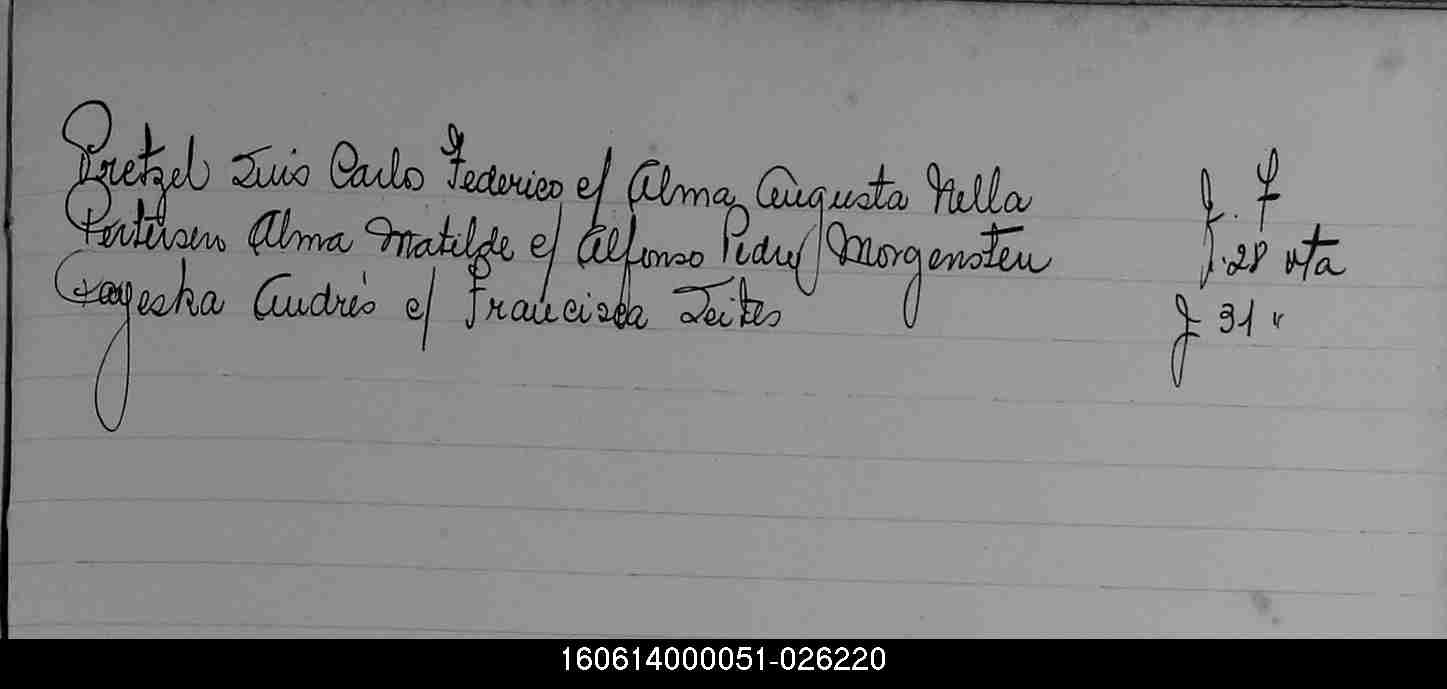 Pretzel Luis Carlo Federico c/ Alma Augusta Nella f. 7
Pertersen Alma Matilde c/ Alfonso Pedro Morgenstern f. 28 vta
Andrés c/ Francisca f 31 "
160614000051-026220